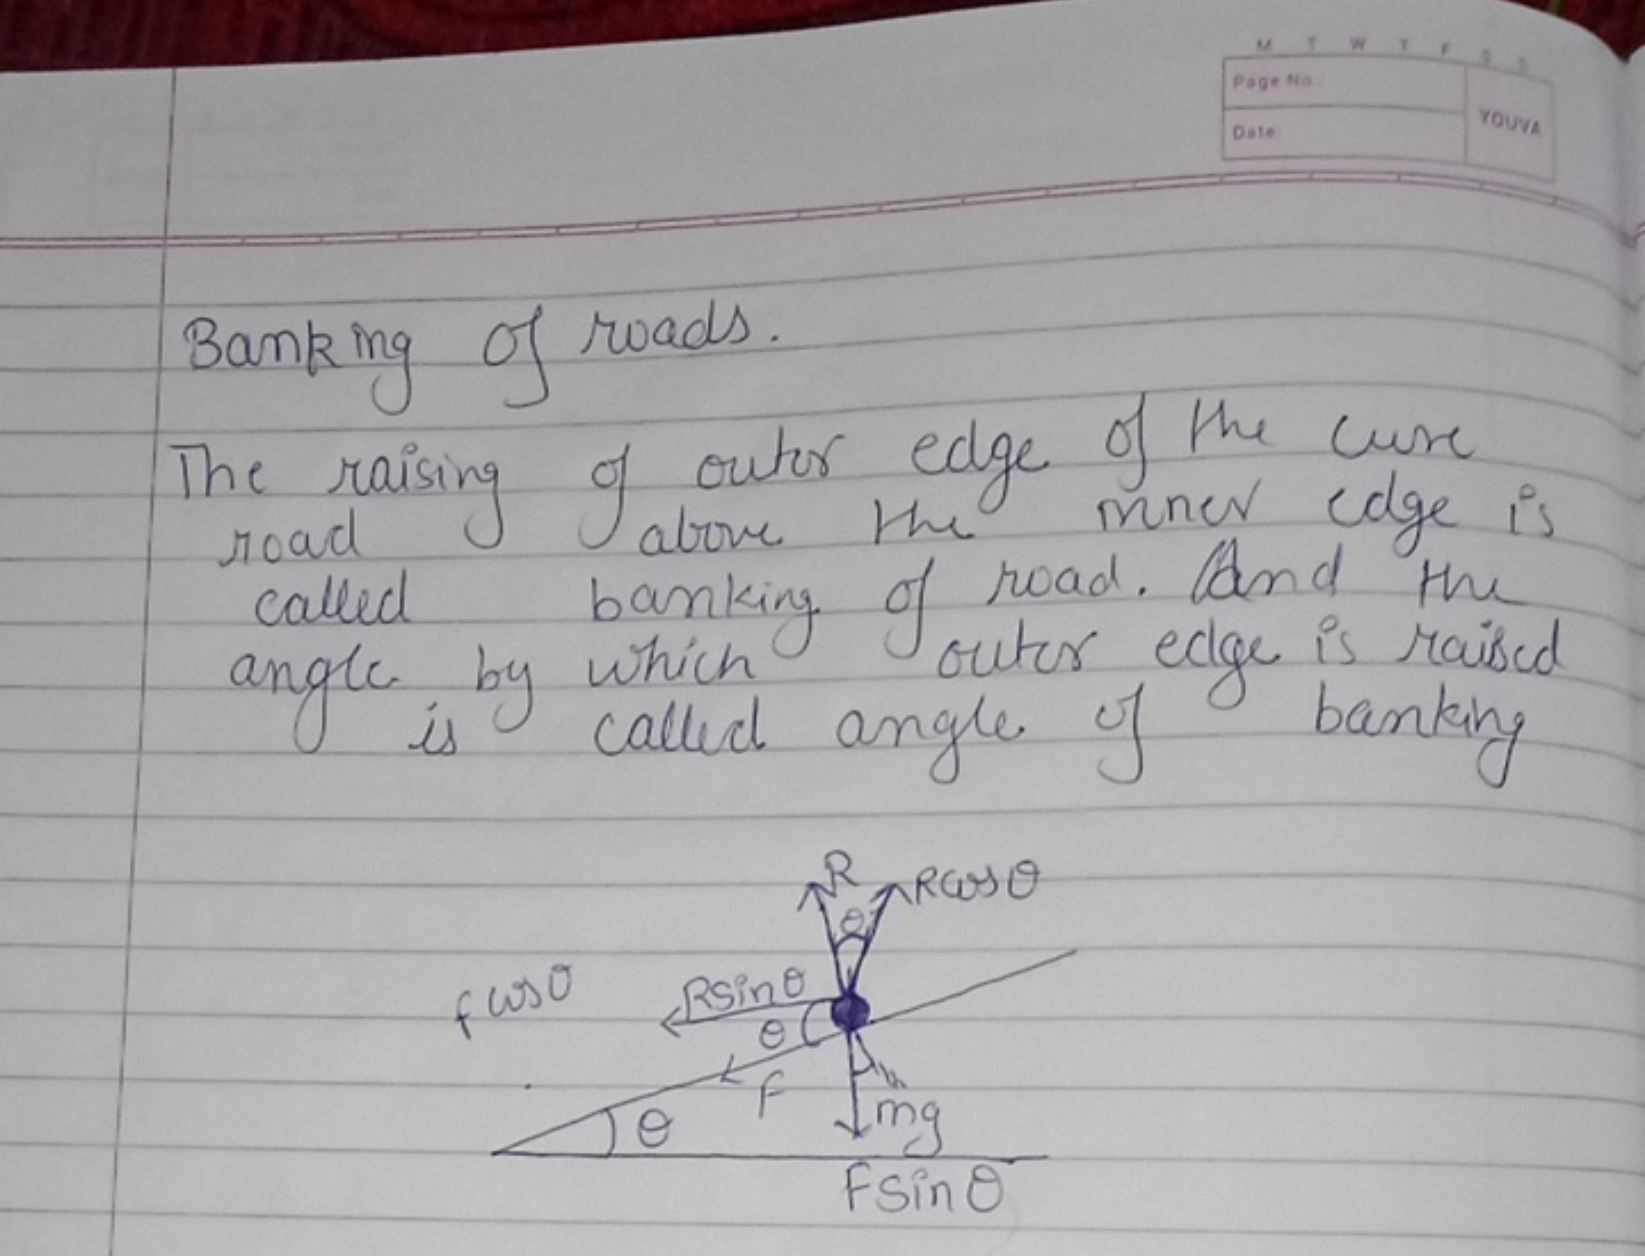 M T W T F S S
Page No.:
Date:
YOUVA
Banking of roads.
The raising of outer edge of the curve
road above the inner edge is
called banking of road. And the
angle by which outer edge is raised
is called angle of banking
R
Rcosθ
θ
fcosθ
Rsinθ
θ
F
θ
mg
Fsinθ